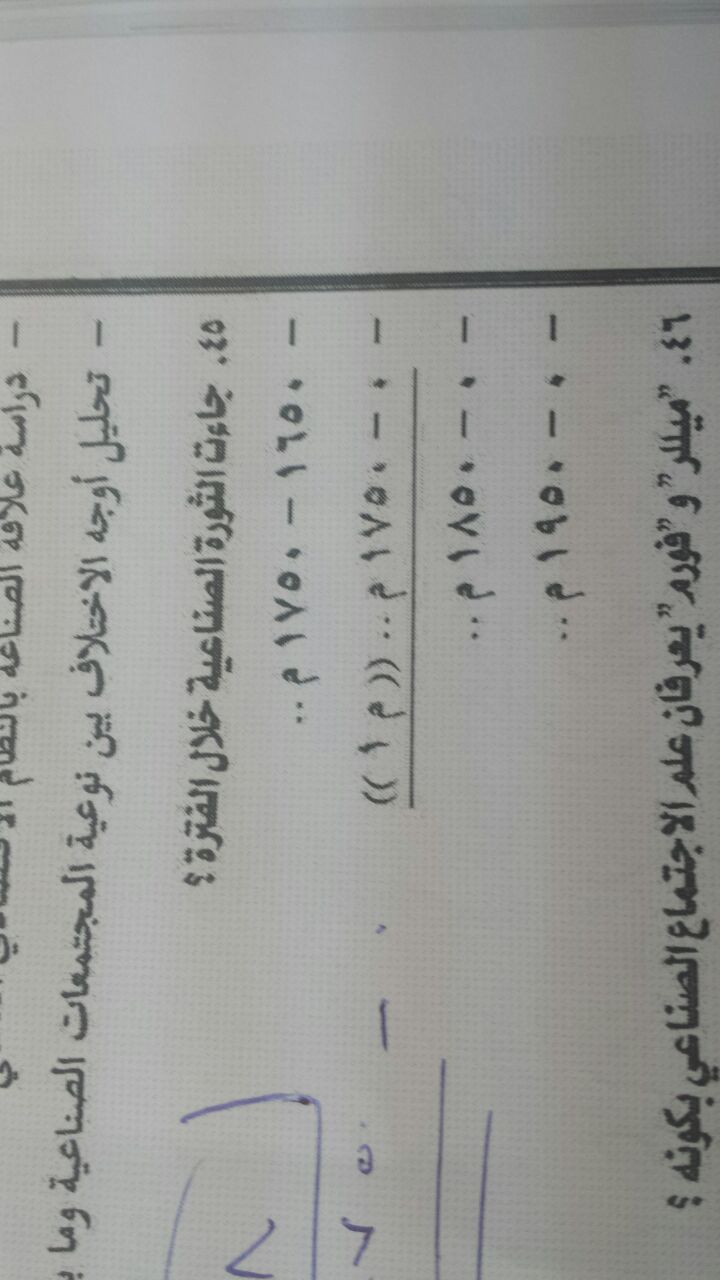 - دراسة علاقة الصناعة بالنظام
- تحليل أوجه الاختلاف بين نوعية المجتمعات الصناعية وما
٤٥. جاءت الثورة الصناعية خلال الفترة ؟
- ١٦٥٠ – ١٧٥٠ م ..
- ٠ – ١٧٥٠ م .. ((م ١))
- ٠ – ١٨٥٠ م ..
- ٠ – ١٩٥٠ م ..
٤٦. "ميللر" و "فورم" يعرفان علم الاجتماع الصناعي بكونه ؟